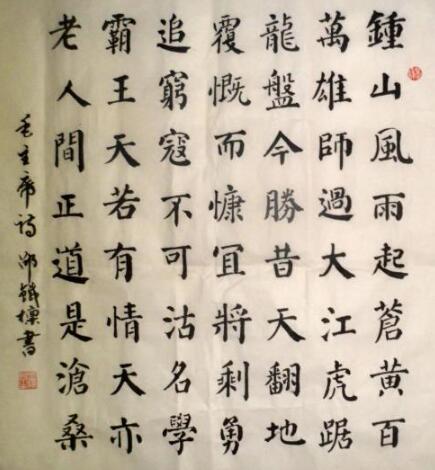 鍾山風雨起蒼黃百
萬雄師過大江虎踞
龍盤今勝昔天翻地
覆慨而慷冝將剩勇
追窮寇不可沽名學
霸王天若有情天亦
老人間正道是滄桑
毛主席詩 鐵標書